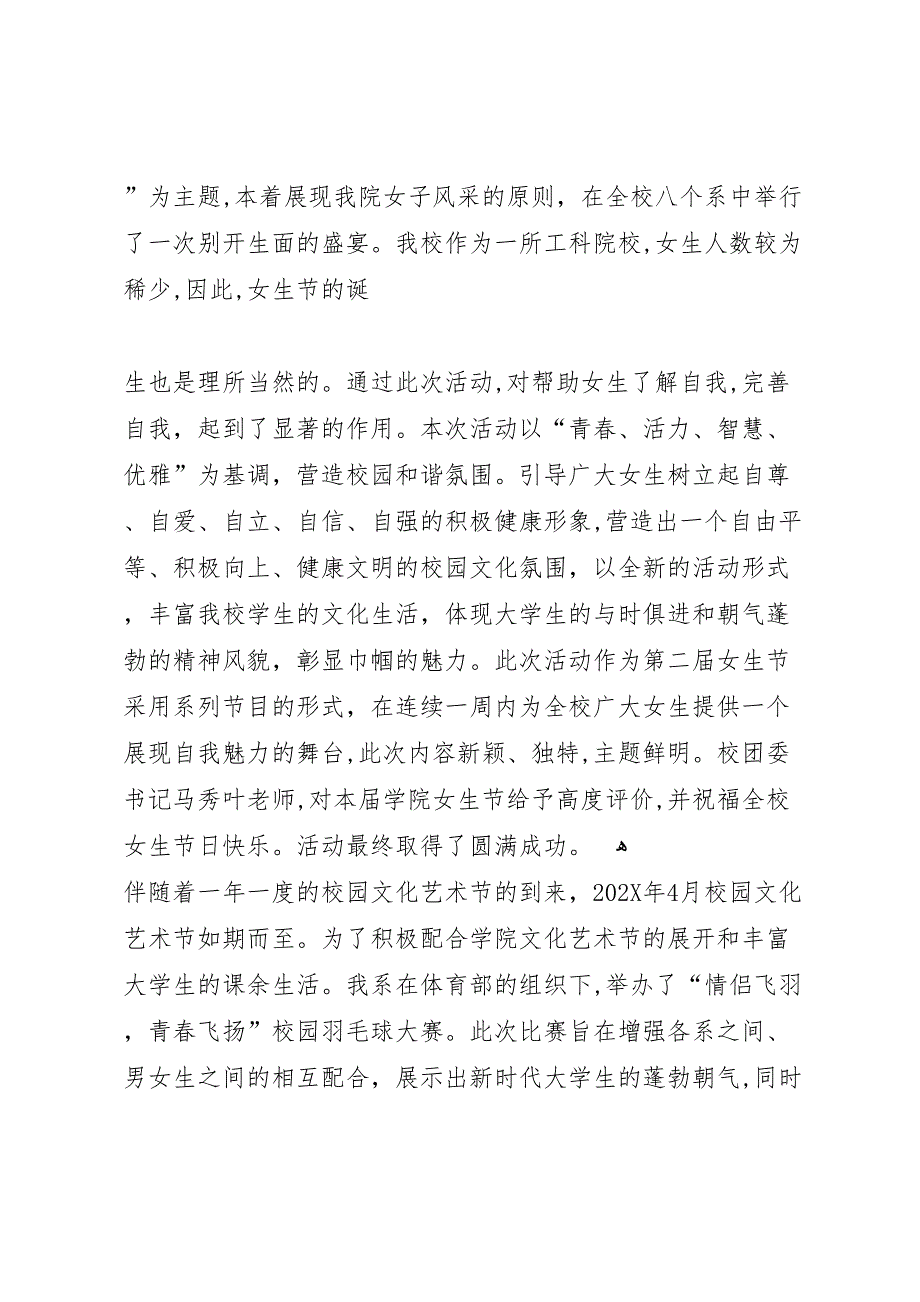 ”为主题,本着展现我院女子风采的原则，在全校八个系中举行
了一次别开生面的盛宴。我校作为一所工科院校,女生人数较为
稀少,因此,女生节的诞
生也是理所当然的。通过此次活动,对帮助女生了解自我,完善
自我，起到了显著的作用。本次活动以“青春、活力、智慧、
优雅”为基调，营造校园和谐氛围。引导广大女生树立起自尊
、自爱、自立、自信、自强的积极健康形象,营造出一个自由平
等、积极向上、健康文明的校园文化氛围，以全新的活动形式
，丰富我校学生的文化生活，体现大学生的与时俱进和朝气蓬
勃的精神风貌，彰显巾帼的魅力。此次活动作为第二届女生节
采用系列节目的形式，在连续一周内为全校广大女生提供一个
展现自我魅力的舞台,此次内容新颖、独特,主题鲜明。校团委
书记马秀叶老师,对本届学院女生节给予高度评价,并祝福全校
女生节日快乐。活动最终取得了圆满成功。 ﻫ
伴随着一年一度的校园文化艺术节的到来，202X年4月校园文化
艺术节如期而至。为了积极配合学院文化艺术节的展开和丰富
大学生的课余生活。我系在体育部的组织下,举办了“情侣飞羽
，青春飞扬”校园羽毛球大赛。此次比赛旨在增强各系之间、
男女生之间的相互配合，展示出新时代大学生的蓬勃朝气,同时